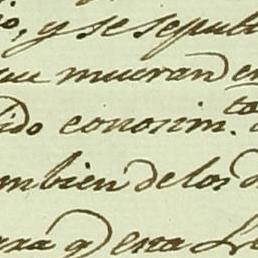 o, y se sepul
que mueran en
dido conosim.to
mbien de los d
ara q en esta